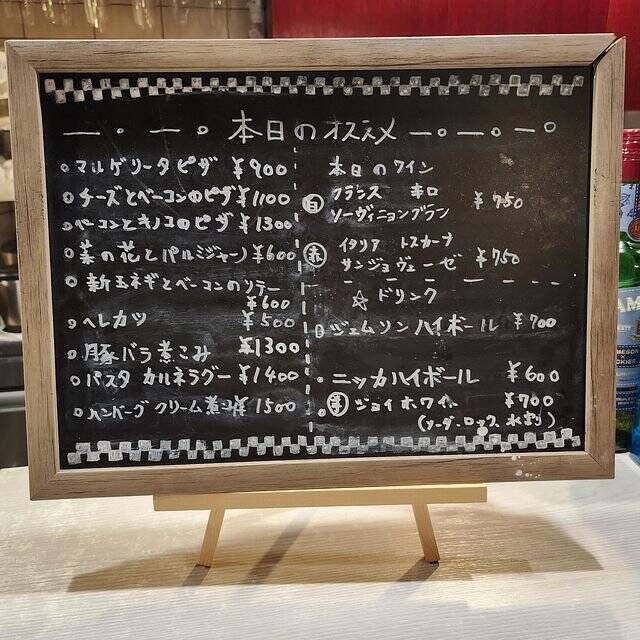 本日のオススメ
マルゲリータピザ ¥900
チーズとベーコンのピザ ¥1100
ベーコンとキノコのピザ ¥1300
菜の花とパルミジャーノ ¥600
新玉ネギとベーコンのソテー
¥600
ヘレカツ ¥500
豚バラ煮こみ ¥1300
パスタ カルネラグー ¥1400
ハンバーグ クリーム煮込 ¥1500
本日のワイン
白 フランス 辛口
ソーヴィニョンブラン ¥750
赤 イタリア トスカーナ
サンジョヴェーゼ ¥750
☆ドリンク
ジェムソンハイボール ¥700
ニッカハイボール ¥600
ジョイホワイト ¥700
(ソーダ・ロック・水割)
JAMESON